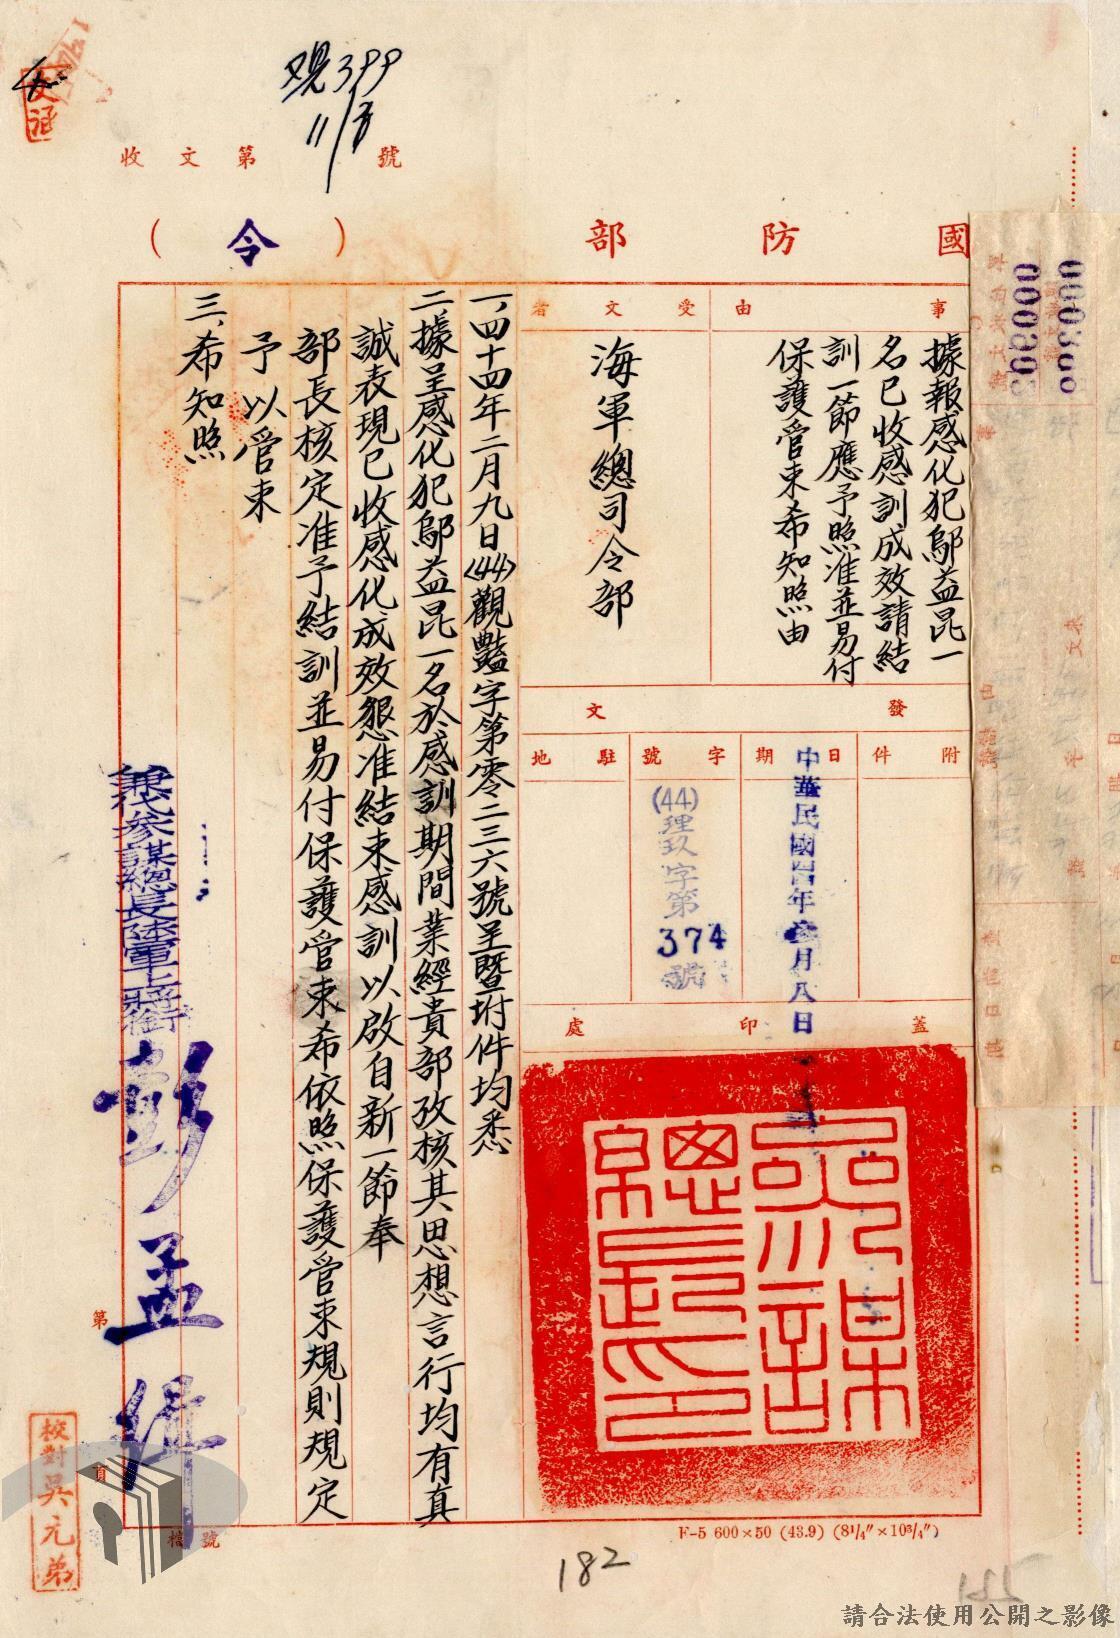 觀399
11/3
收文第 號
國防部(令)
事由
據報感化犯鄔益昆一
名已收感訓成效請結
訓一節應予照准並易付
保護管束希知照由
受文者
海軍總司令部
發文
附件
日期
中華民國四四年 月八日
字號
(44)理玖字第
374
號
駐地
蓋印處
參謀
總長之印
一、四十四年二月九日(44)觀豔字第零二三六號呈暨坿件均悉
二、據呈感化犯鄔益昆一名於感訓期間業經貴部攷核其思想言行均有真
誠表現已收感化成效懇准結束感訓以啟自新一節奉
部長核定准予結訓並易付保護管束希依照保護管束規則規定
予以管束
三、希知照
兼代參謀總長陸軍上將銜
彭孟緝
第
頁
檔號
校對吳元弟
000388
000393
F-5 600×50 (43.9) (8¼″×10¾″)
182
155
請合法使用公開之影像